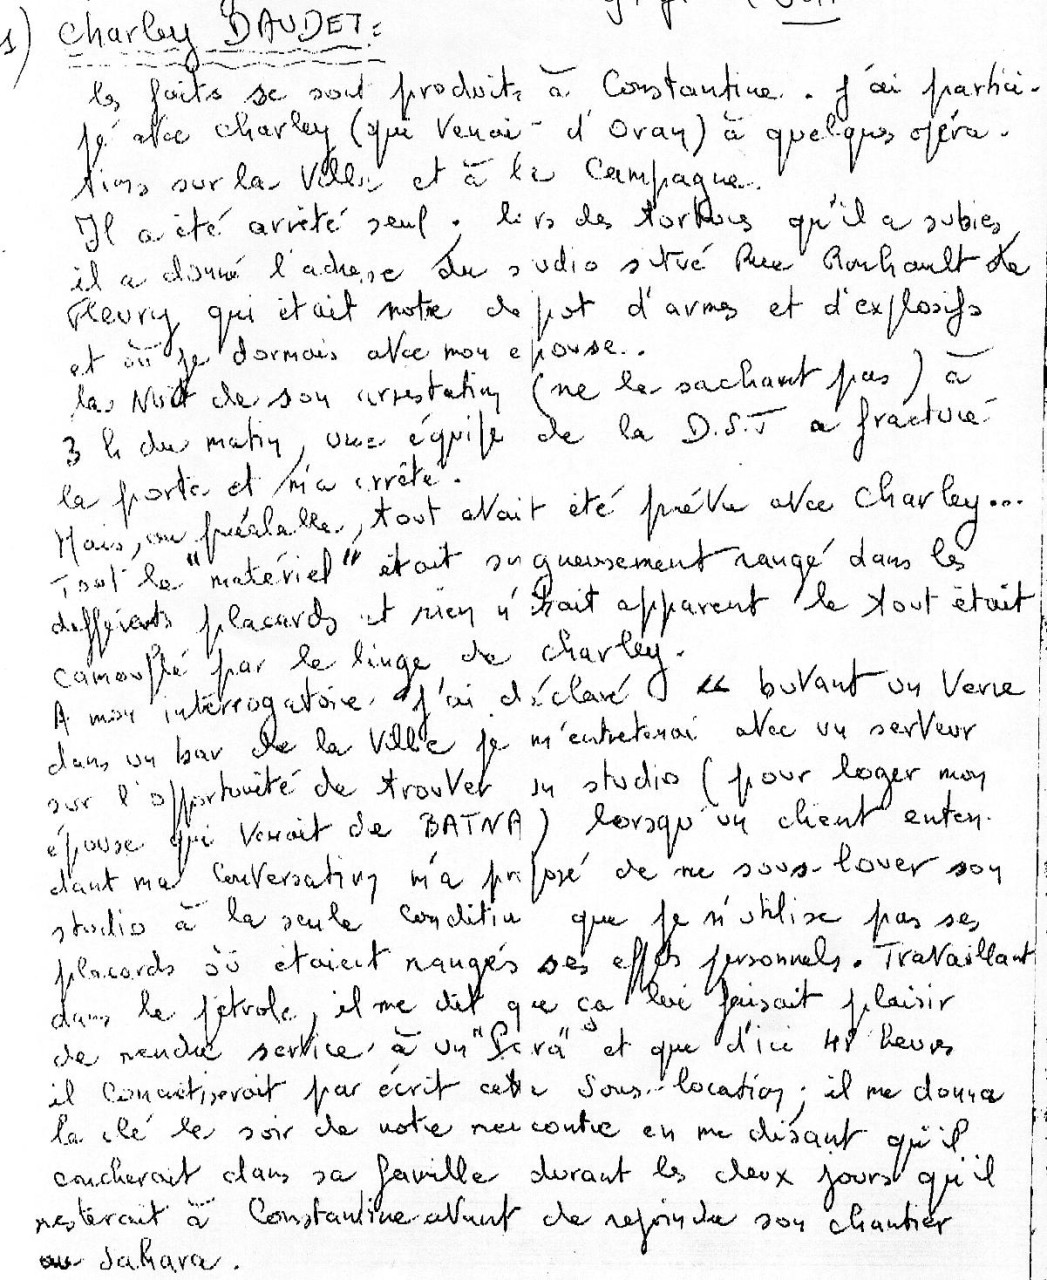 1) Charley DAUDET:
les faits se sont produits à Constantine. J'ai partici-
pé avec Charley (qui venait d'Oran) à quelques opéra-
tions sur la Ville et à la Campagne.
Il a été arrêté seul. lors des tortures qu'il a subies,
il a donné l'adresse du studio situé Rue Rouhault de
Fleury qui était notre dépot d'armes et d'explosifs
et où je dormais avec mon épouse..
la Nuit de son arrestation (ne le sachant pas) à
3 h du matin, une équipe de la D.S.T a fracturé
la porte et m'a arrêté.
Mais, au préalable, tout avait été prévu avec Charley...
Tout le "matériel" était soigneusement rangé dans les
différents placards et rien n'était apparent le tout était
camouflé par le linge de Charley.
A mon interrogatoire j'ai déclaré « buvant un verre
dans un bar de la Ville je m'entretenai avec un serveur
sur l'opportunité de trouver un studio (pour loger mon
épouse qui venait de BATNA) lorsqu'un client enten-
dant ma conversation m'a proposé de me sous-louer son
studio à la seule condition que je n'utilise pas ses
placards où étaient rangés ses effets personnels. Travaillant
dans le pétrole, il me dit que ça lui faisait plaisir
de rendre service à un "Para" et que d'ici 48 heures
il concrétiserait par écrit cette Sous-location; il me donna
la clé le soir de notre rencontre en me disant qu'il
coucherait dans sa famille durant les deux jours qu'il
resterait à Constantine avant de rejoindre son chantier
au Sahara.